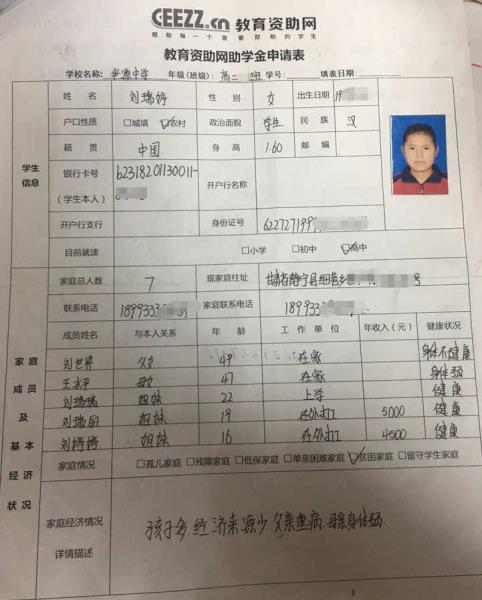 CEEZZ.cn 教育资助网
帮助每一个需要帮助的学生
教育资助网助学金申请表
学校名称: 中学 年级(班级): 高二 班 学号: 填表日期:
学生信息
姓名 刘瑞婷 性别 女 出生日期 19
户口性质 □城镇 ☑农村 政治面貌 学生 民族 汉
籍贯 中国 身高 1.60 邮编
银行卡号(学生本人) 62318201130011- 开户行名称
开户行支行 身份证号 622727199
目前就读 □小学 □初中 ☑高中
家庭成员及基本经济状况
家庭总人数 7 现家庭住址 甘肃省静宁县细巷乡 号
联系电话 1899333 家庭联系电话 189933
成员姓名 与本人关系 年龄 工作单位 年收入(元) 健康状况
刘世界 父女 49 在家 身体不健康
王水平 母女 47 在家 身体弱
刘瑞瑞 姐妹 22 上学 健康
刘瑞丽 姐妹 19 在外打工 5000 健康
刘婷婷 姐妹 16 在外打工 4500 健康
家庭情况 □孤儿家庭 □残障家庭 □低保家庭 □单亲困难家庭 ☑贫困家庭 □留守学生家庭
家庭经济情况详情描述 孩子多.经济来源少.父亲重病.母亲身体弱.